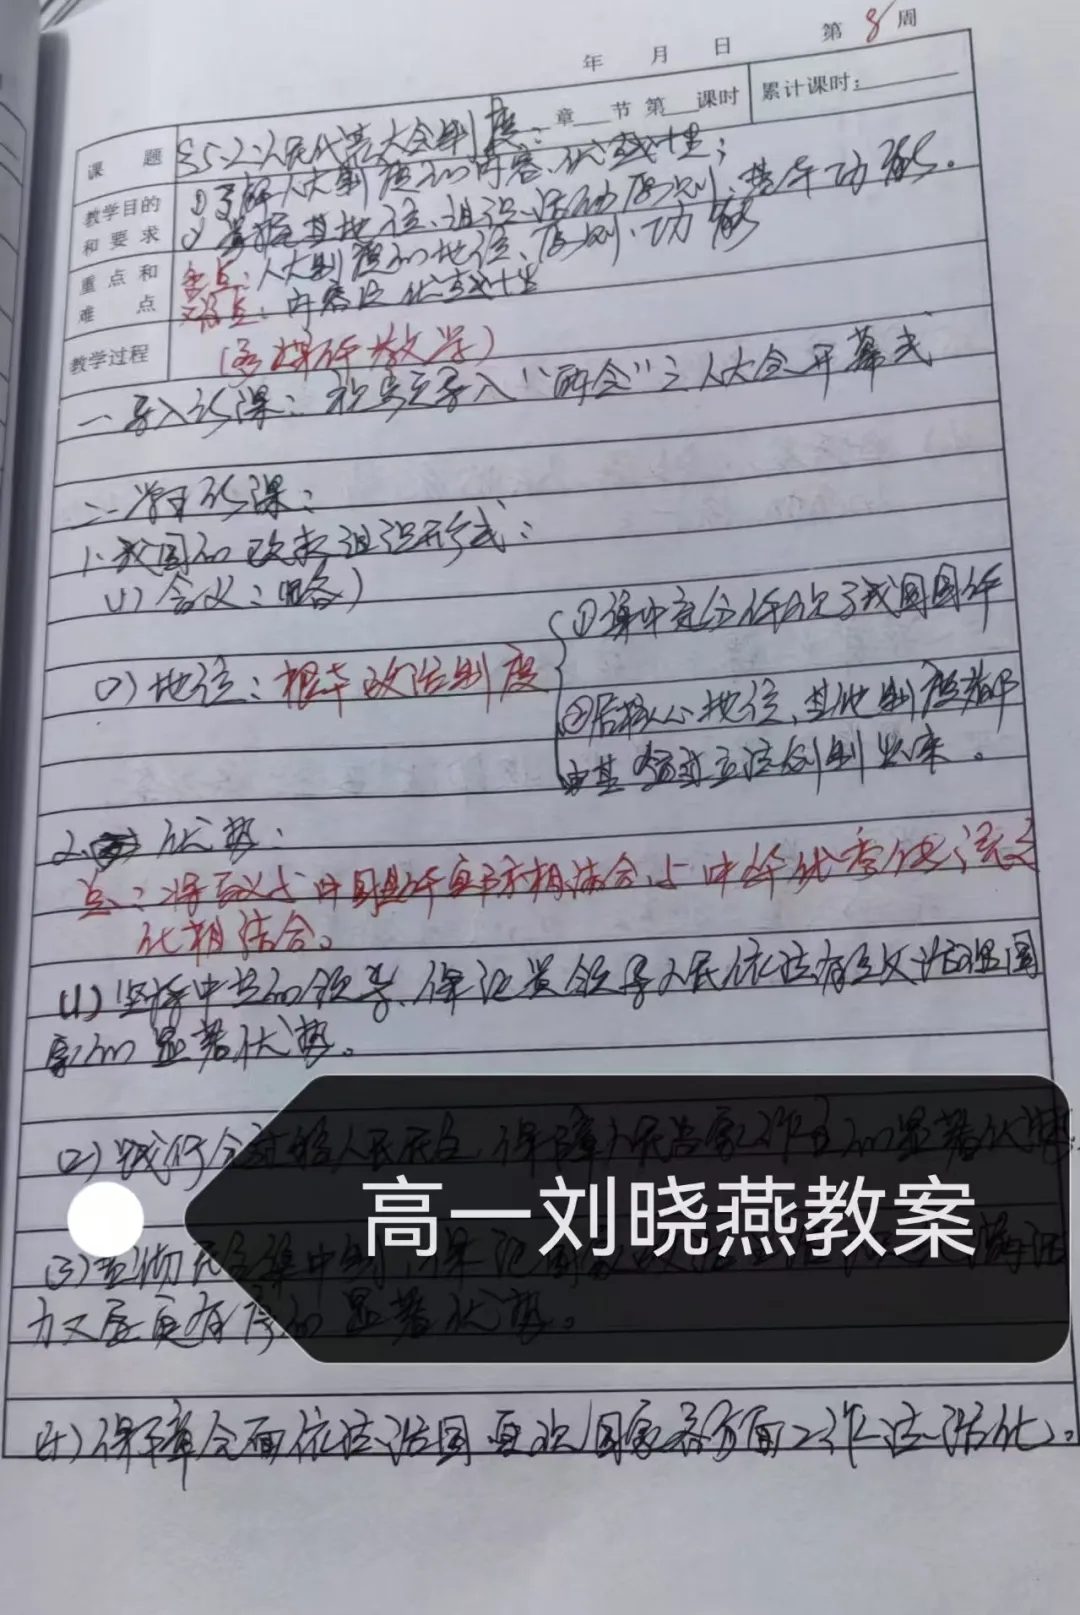 年 月 日 第8周
课题 §5.2.人民代表大会制度. 章 节第 课时 累计课时:
教学目的和要求 ①了解人大制度的内容、优越性;
② 掌握其地位、组织活动原则、基本功能.
重点和难点 重点: 人大制度的地位、原则、功能
难点: 内容及优越性
教学过程 (多媒体教学)
一.导入新课: 视频导入"两会"之人大会开幕式
二.学习新课:
1.我国的政权组织形式:
(1) 含义: (略)
(2) 地位: 根本政治制度
①集中充分体现了我国国体
②居核心地位、其他制度都
由其通过立法创制出来。
2. 优势:
点: 将马义与中国具体实际相结合、与中华优秀传统文
化相结合。
(1) 坚持中共的领导、保证党领导人民依法有效治理国
家的显著优势。
(2) 践行全过程人民民主 保障人民当家作主的显著优势
高一刘晓燕教案
(3) 民主集中制
力又居有序的显著优势。
(4) 保障全面依法治国 实现国家各方面工作法治化。